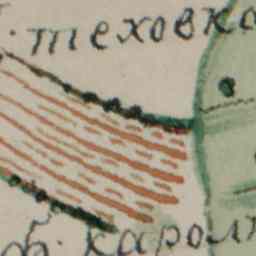 теховка
б. карол